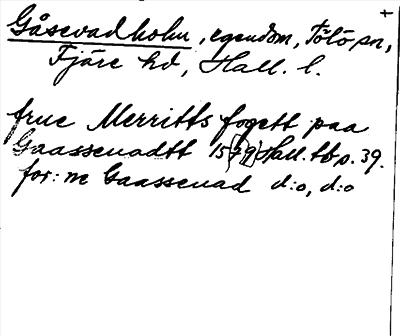 Gåsevadholm, egendom, Tölö sn, +
Fjäre hd, Hall. l.
frue Merritts fogett paa
Gaasseuadtt 15[79] Hall. tb p. 39.
for: ne Gaasseuad d:o, d:o